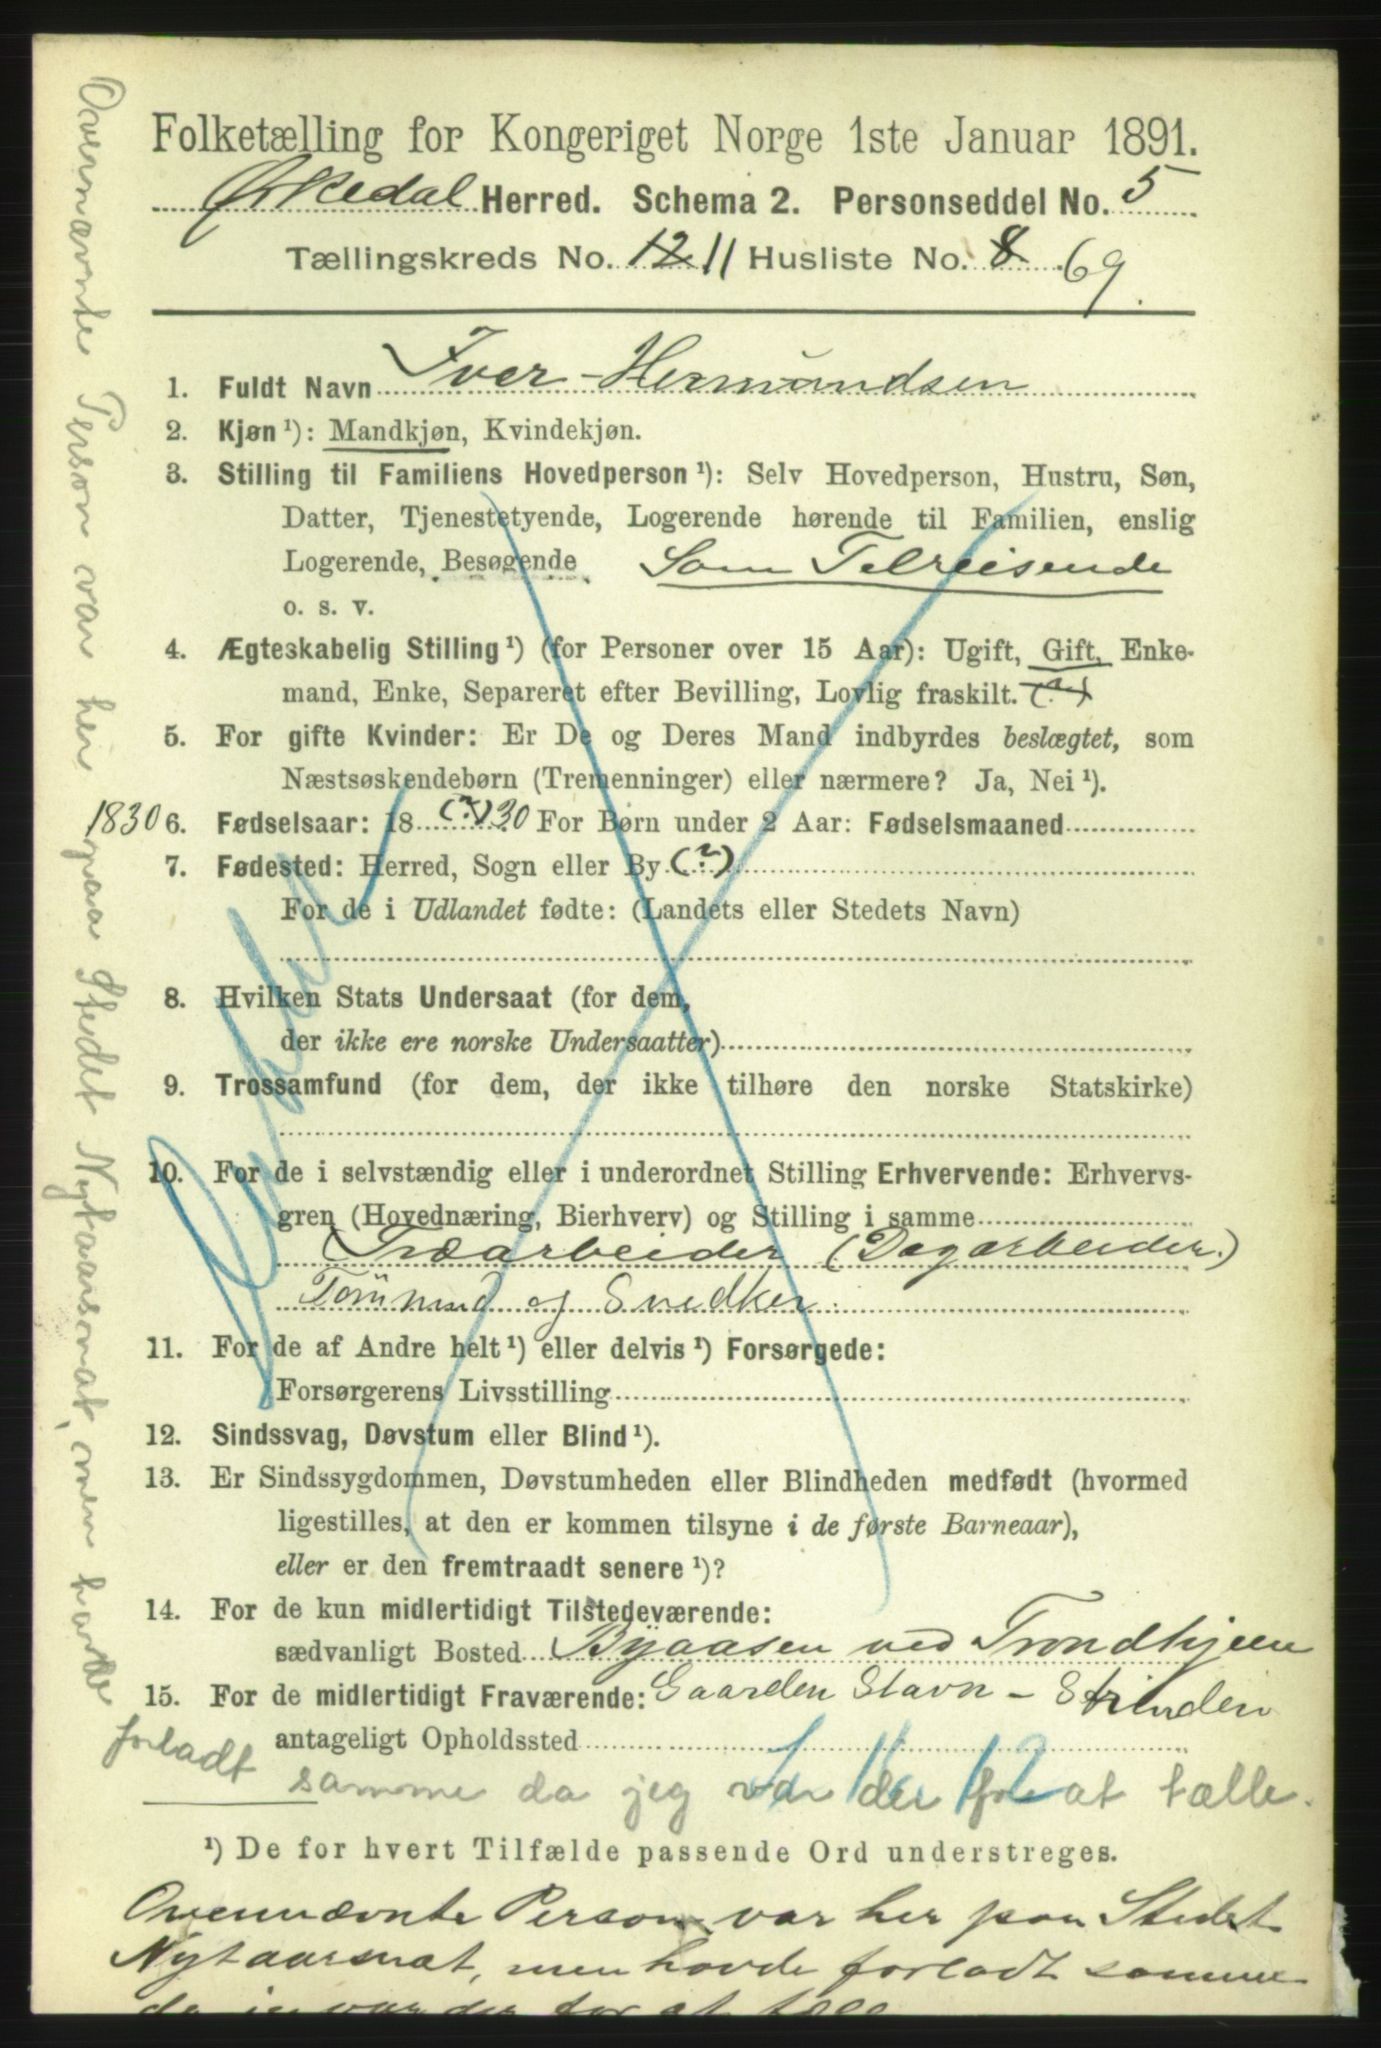 Folketælling for Kongeriget Norge 1ste Januar 1891.
Ørkedal Herred. Schema 2. Personseddel No. 5
Tællingskreds No. 12 11 Husliste No. 8 69.
1. Fuldt Navn Iver Hermundsen
2. Kjøn ¹): Mandkjøn, Kvindekjøn.
3. Stilling til Familiens Hovedperson ¹): Selv Hovedperson, Hustru, Søn,
Datter, Tjenestetyende, Logerende hørende til Familien, enslig
Logerende, Besøgende Som Tilreisende
o. s. v.
4. Ægteskabelig Stilling ¹) (for Personer over 15 Aar): Ugift, Gift, Enke-
mand, Enke, Separeret efter Bevilling, Lovlig fraskilt. (?)
5. For gifte Kvinder: Er De og Deres Mand indbyrdes beslægtet, som
Næstsøskendebørn (Tremenninger) eller nærmere? Ja, Nei ¹).
1830 6. Fødselsaar: 18 (?) 30 For Børn under 2 Aar: Fødselsmaaned
7. Fødested: Herred, Sogn eller By (?)
For de i Udlandet fødte: (Landets eller Stedets Navn)
8. Hvilken Stats Undersaat (for dem,
der ikke ere norske Undersaatter)
9. Trossamfund (for dem, der ikke tilhøre den norske Statskirke)
10. For de i selvstændig eller i underordnet Stilling Erhvervende: Erhvervs-
gren (Hovednæring, Bierhverv) og Stilling i samme
Træarbeider (Dagarbeider.)
Tømmerm og Snedker
11. For de af Andre helt ¹) eller delvis ¹) Forsørgede:
Forsørgerens Livsstilling
12. Sindssvag, Døvstum eller Blind ¹).
13. Er Sindssygdommen, Døvstumheden eller Blindheden medfødt (hvormed
ligestilles, at den er kommen tilsyne i de første Barneaar),
eller er den fremtraadt senere ¹)?
14. For de kun midlertidigt Tilstedeværende:
sædvanligt Bosted Byaasen ved Trondhjem
15. For de midlertidigt Fraværende: Gaarden Stavn - Strinden
antageligt Opholdssted
Ovennævnte Person var her paa Stedet Nytaarsnat, men havde
forladt samme da jeg var der for at tælle.
¹) De for hvert Tilfælde passende Ord understreges.
Ovennævnte Person var her paa Stedet
Nytaarsnat, men havde forladt samme
da jeg var der for at tælle